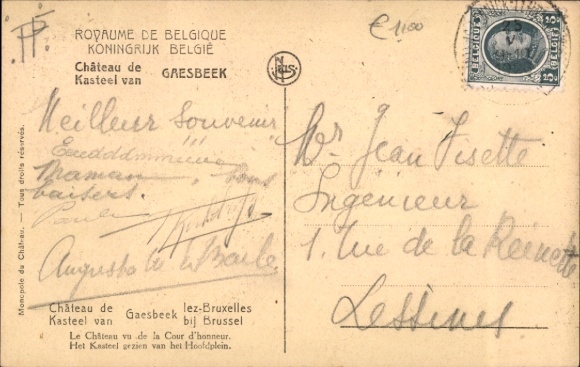 € 1,00
ROYAUME DE BELGIQUE
KONINGRIJK BELGIË
Château de
Kasteel van GAESBEEK
NELS
BELGIQUE BELGIË
Meilleur Souvenir
Maman, bons
baisers.
Paula
Augusta
Mr Jean Fisette
Ingénieur
1. rue de la Reinette
Lessines
Monopole du Château. — Tous droits réservés.
Château de Gaesbeek lez-Bruxelles
Kasteel van Gaesbeek bij Brussel
Le Château vu de la Cour d'honneur.
Het Kasteel gezien van het Hoofdplein.